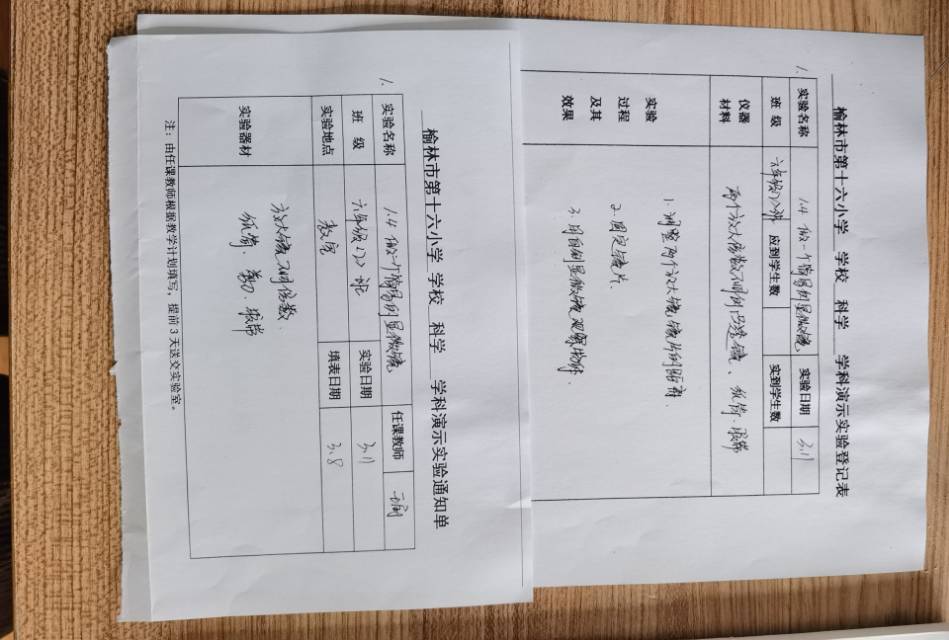 1.
榆林市第十六小学 学校 科学 学科演示实验登记表
实验名称 1.4 做一个简易的显微镜 实验日期 3.11
班 级 六年级(2)班 应到学生数 实到学生数
仪器
材料
两个放大倍数不同的凸透镜、纸筒、胶带
实验
过程
及其
效果
1. 调整两个放大镜镜片的距离.
2. 固定镜片.
3. 用自制显微镜观察物体.
1.
榆林市第十六小学 学校 科学 学科演示实验通知单
实验名称 1.4 做一个简易的显微镜 任课教师
班 级 六年级(2)班 实验日期 3.11
实验地点 教室 填表日期 3.8
实验器材
放大镜不同倍数.
纸筒、剪刀、胶带
注：由任课教师根据教学计划填写，提前 3 天送交实验室。